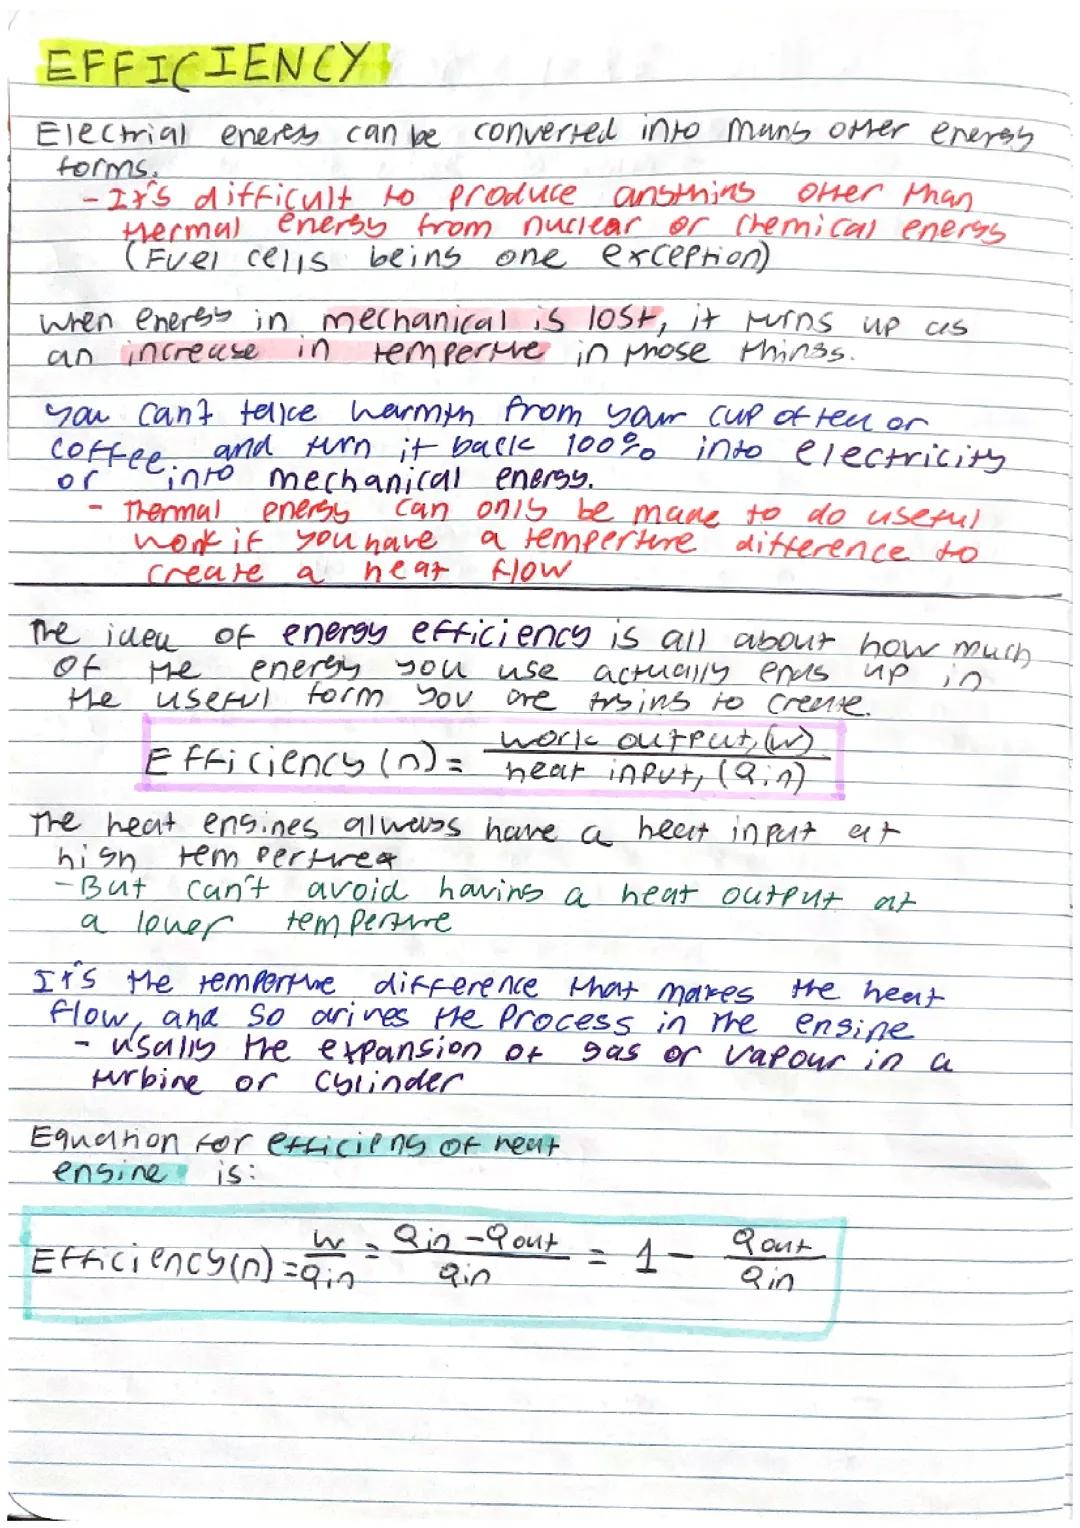 EFFICIENCY
Electrial energy can be converted into many other energy
forms.
- It's difficult to produce anything other than
thermal energy from nuclear or chemical energy
(Fuel cells being one exception)
when energy in mechanical is lost, it turns up as
an increase in temperture in those things.
you can't take warmth from your cup of tea or
coffee and turn it back 100% into electricity
or into mechanical energy.
- Thermal energy can only be made to do useful
work if you have a temperture difference to
create a heat flow
The idea of energy efficiency is all about how much
of the energy you use actually ends up in
the useful form you are trying to create.
Efficiency (n) = work output, (w) / heat input, (Qin)
The heat engines always have a heat input at
high temperturea
- But can't avoid having a heat output at
a lower temperture
It's the temperture difference that makes the heat
flow, and so drives the process in the engine
- usally the expansion of gas or vapour in a
turbine or cylinder
Equation for efficieny of heat
engine is:
Efficiency (n) = w/Qin = Qin - Qout/Qin = 1 - Qout/Qin